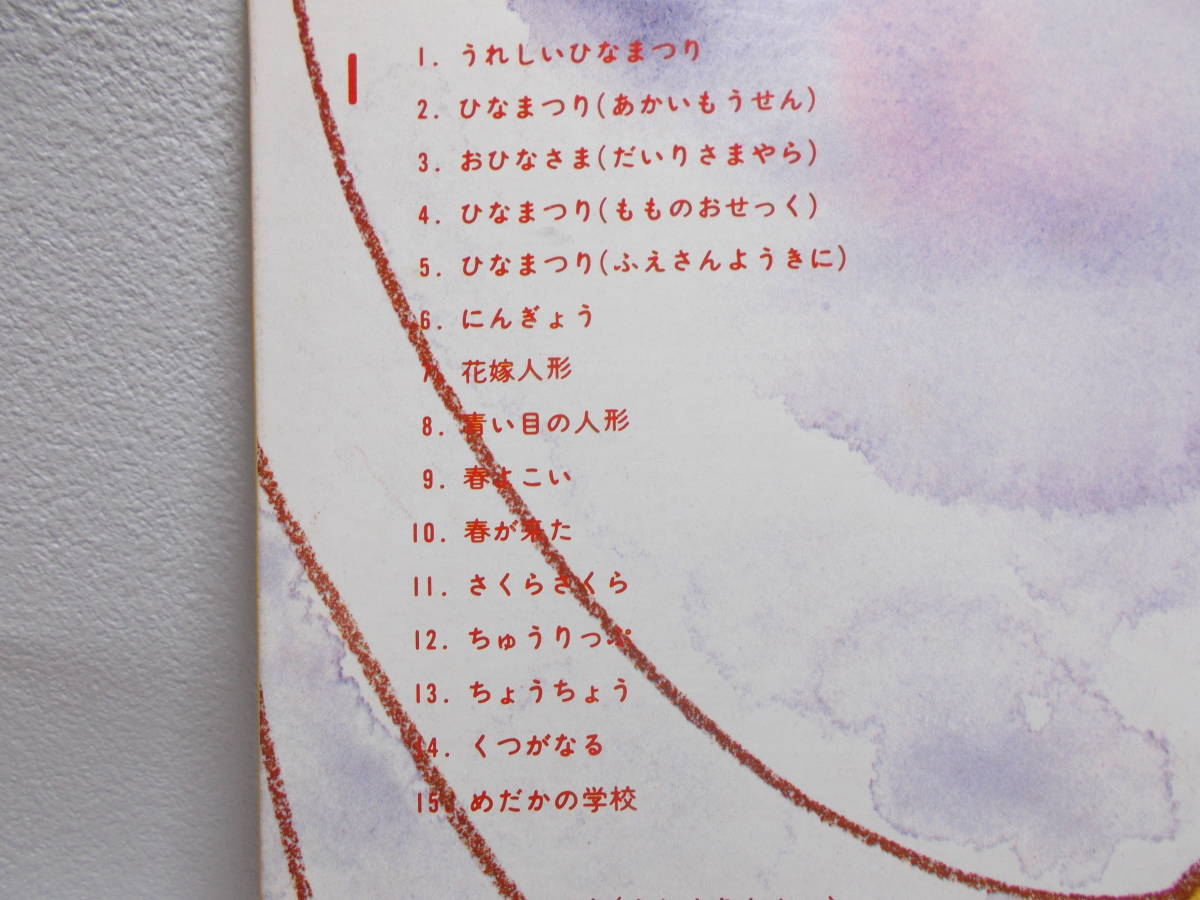 I
1. うれしいひなまつり
2. ひなまつり(あかいもうせん)
3. おひなさま(だいりさまやら)
4. ひなまつり(もものおせっく)
5. ひなまつり(ふえさんようきに)
6. にんぎょう
7. 花嫁人形
8. 青い目の人形
9. 春よこい
10. 春が来た
11. さくらさくら
12. ちゅうりっぷ
13. ちょうちょう
14. くつがなる
15. めだかの学校